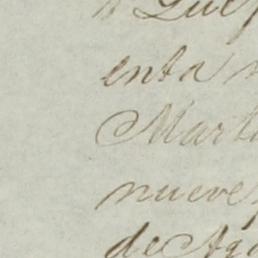 enta
Mart
nueve
de Ag